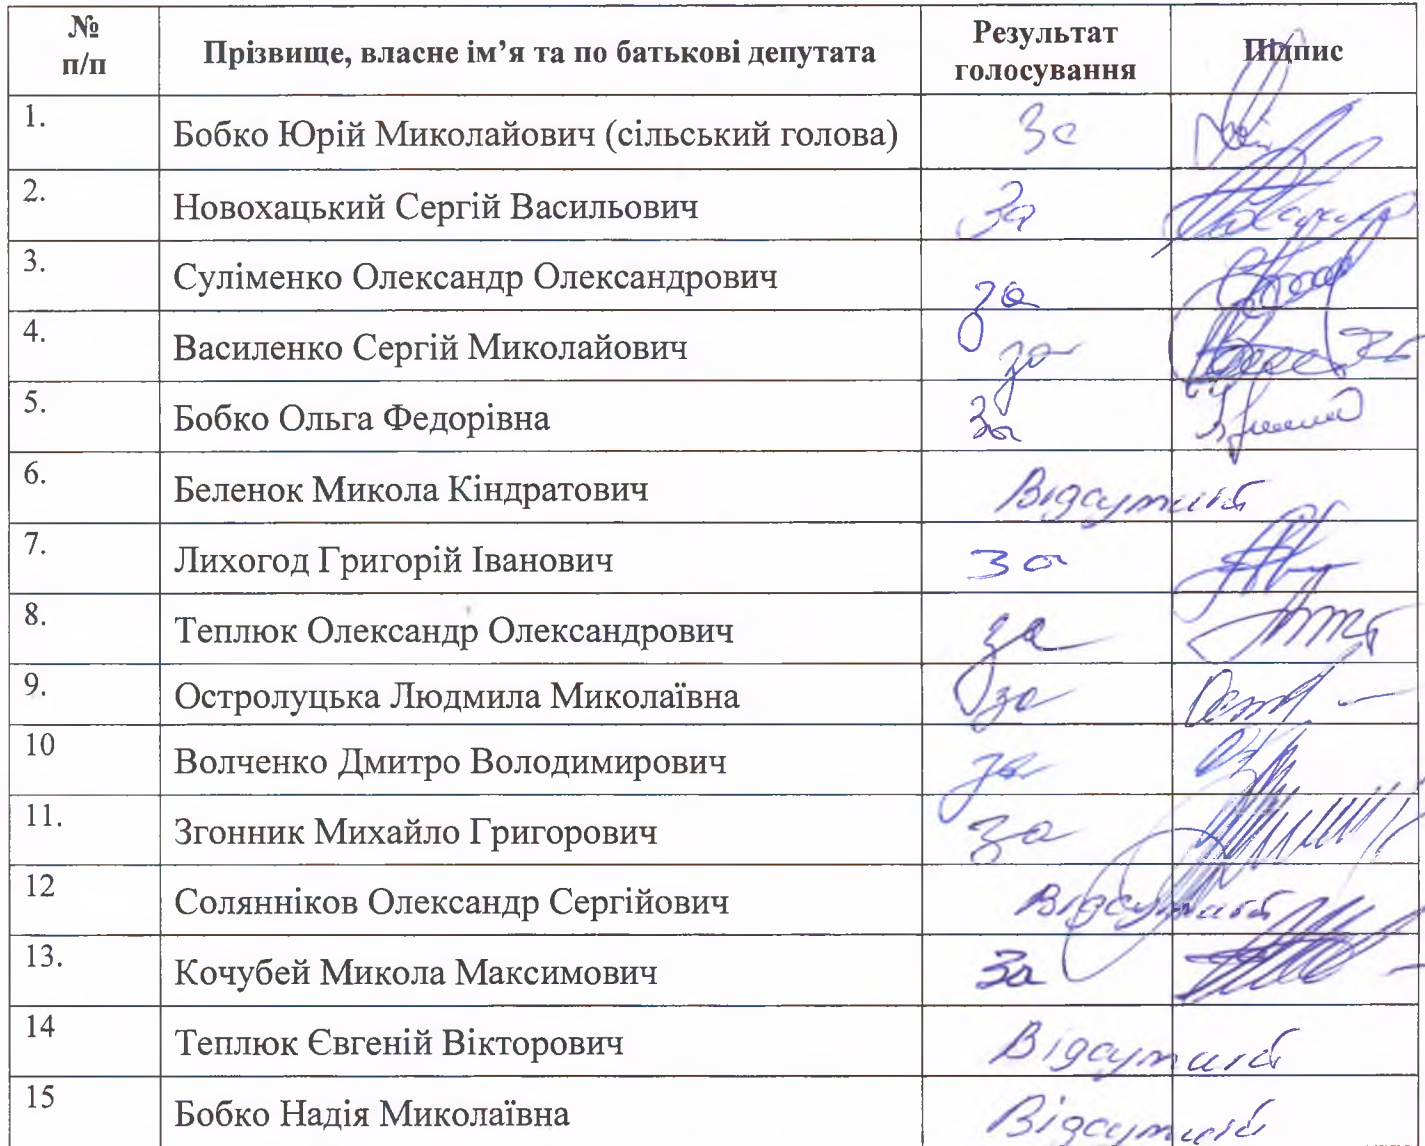 № п/п Прізвище, власне ім’я та по батькові депутата Результат голосування Підпис
1. Бобко Юрій Миколайович (сільський голова) За
2. Новохацький Сергій Васильович За
3. Суліменко Олександр Олександрович за
4. Василенко Сергій Миколайович за
5. Бобко Ольга Федорівна За
6. Беленок Микола Кіндратович Відсутній
7. Лихогод Григорій Іванович За
8. Теплюк Олександр Олександрович за
9. Остролуцька Людмила Миколаївна за
10 Волченко Дмитро Володимирович за
11. Згонник Михайло Григорович за
12 Солянніков Олександр Сергійович Відсутній
13. Кочубей Микола Максимович За
14 Теплюк Євгеній Вікторович Відсутній
15 Бобко Надія Миколаївна Відсутній